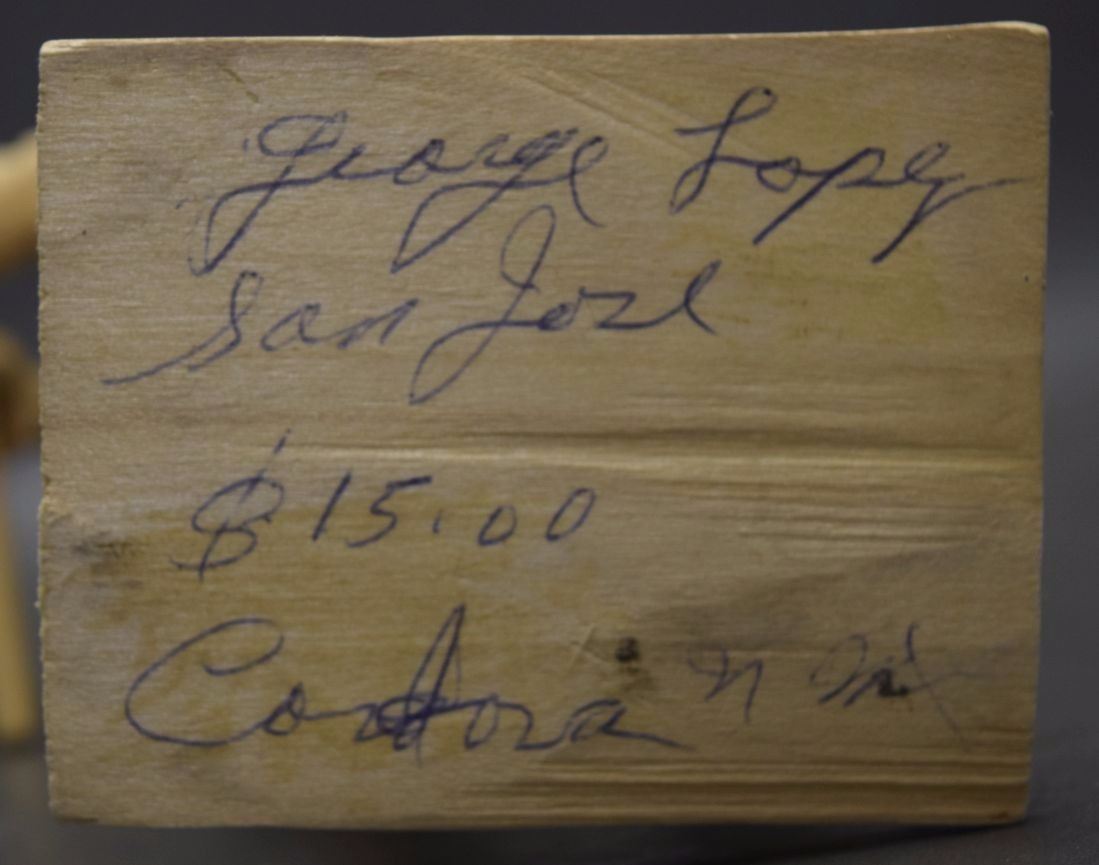 George Lopez
San Jose
$15.00
Cordova N Mex